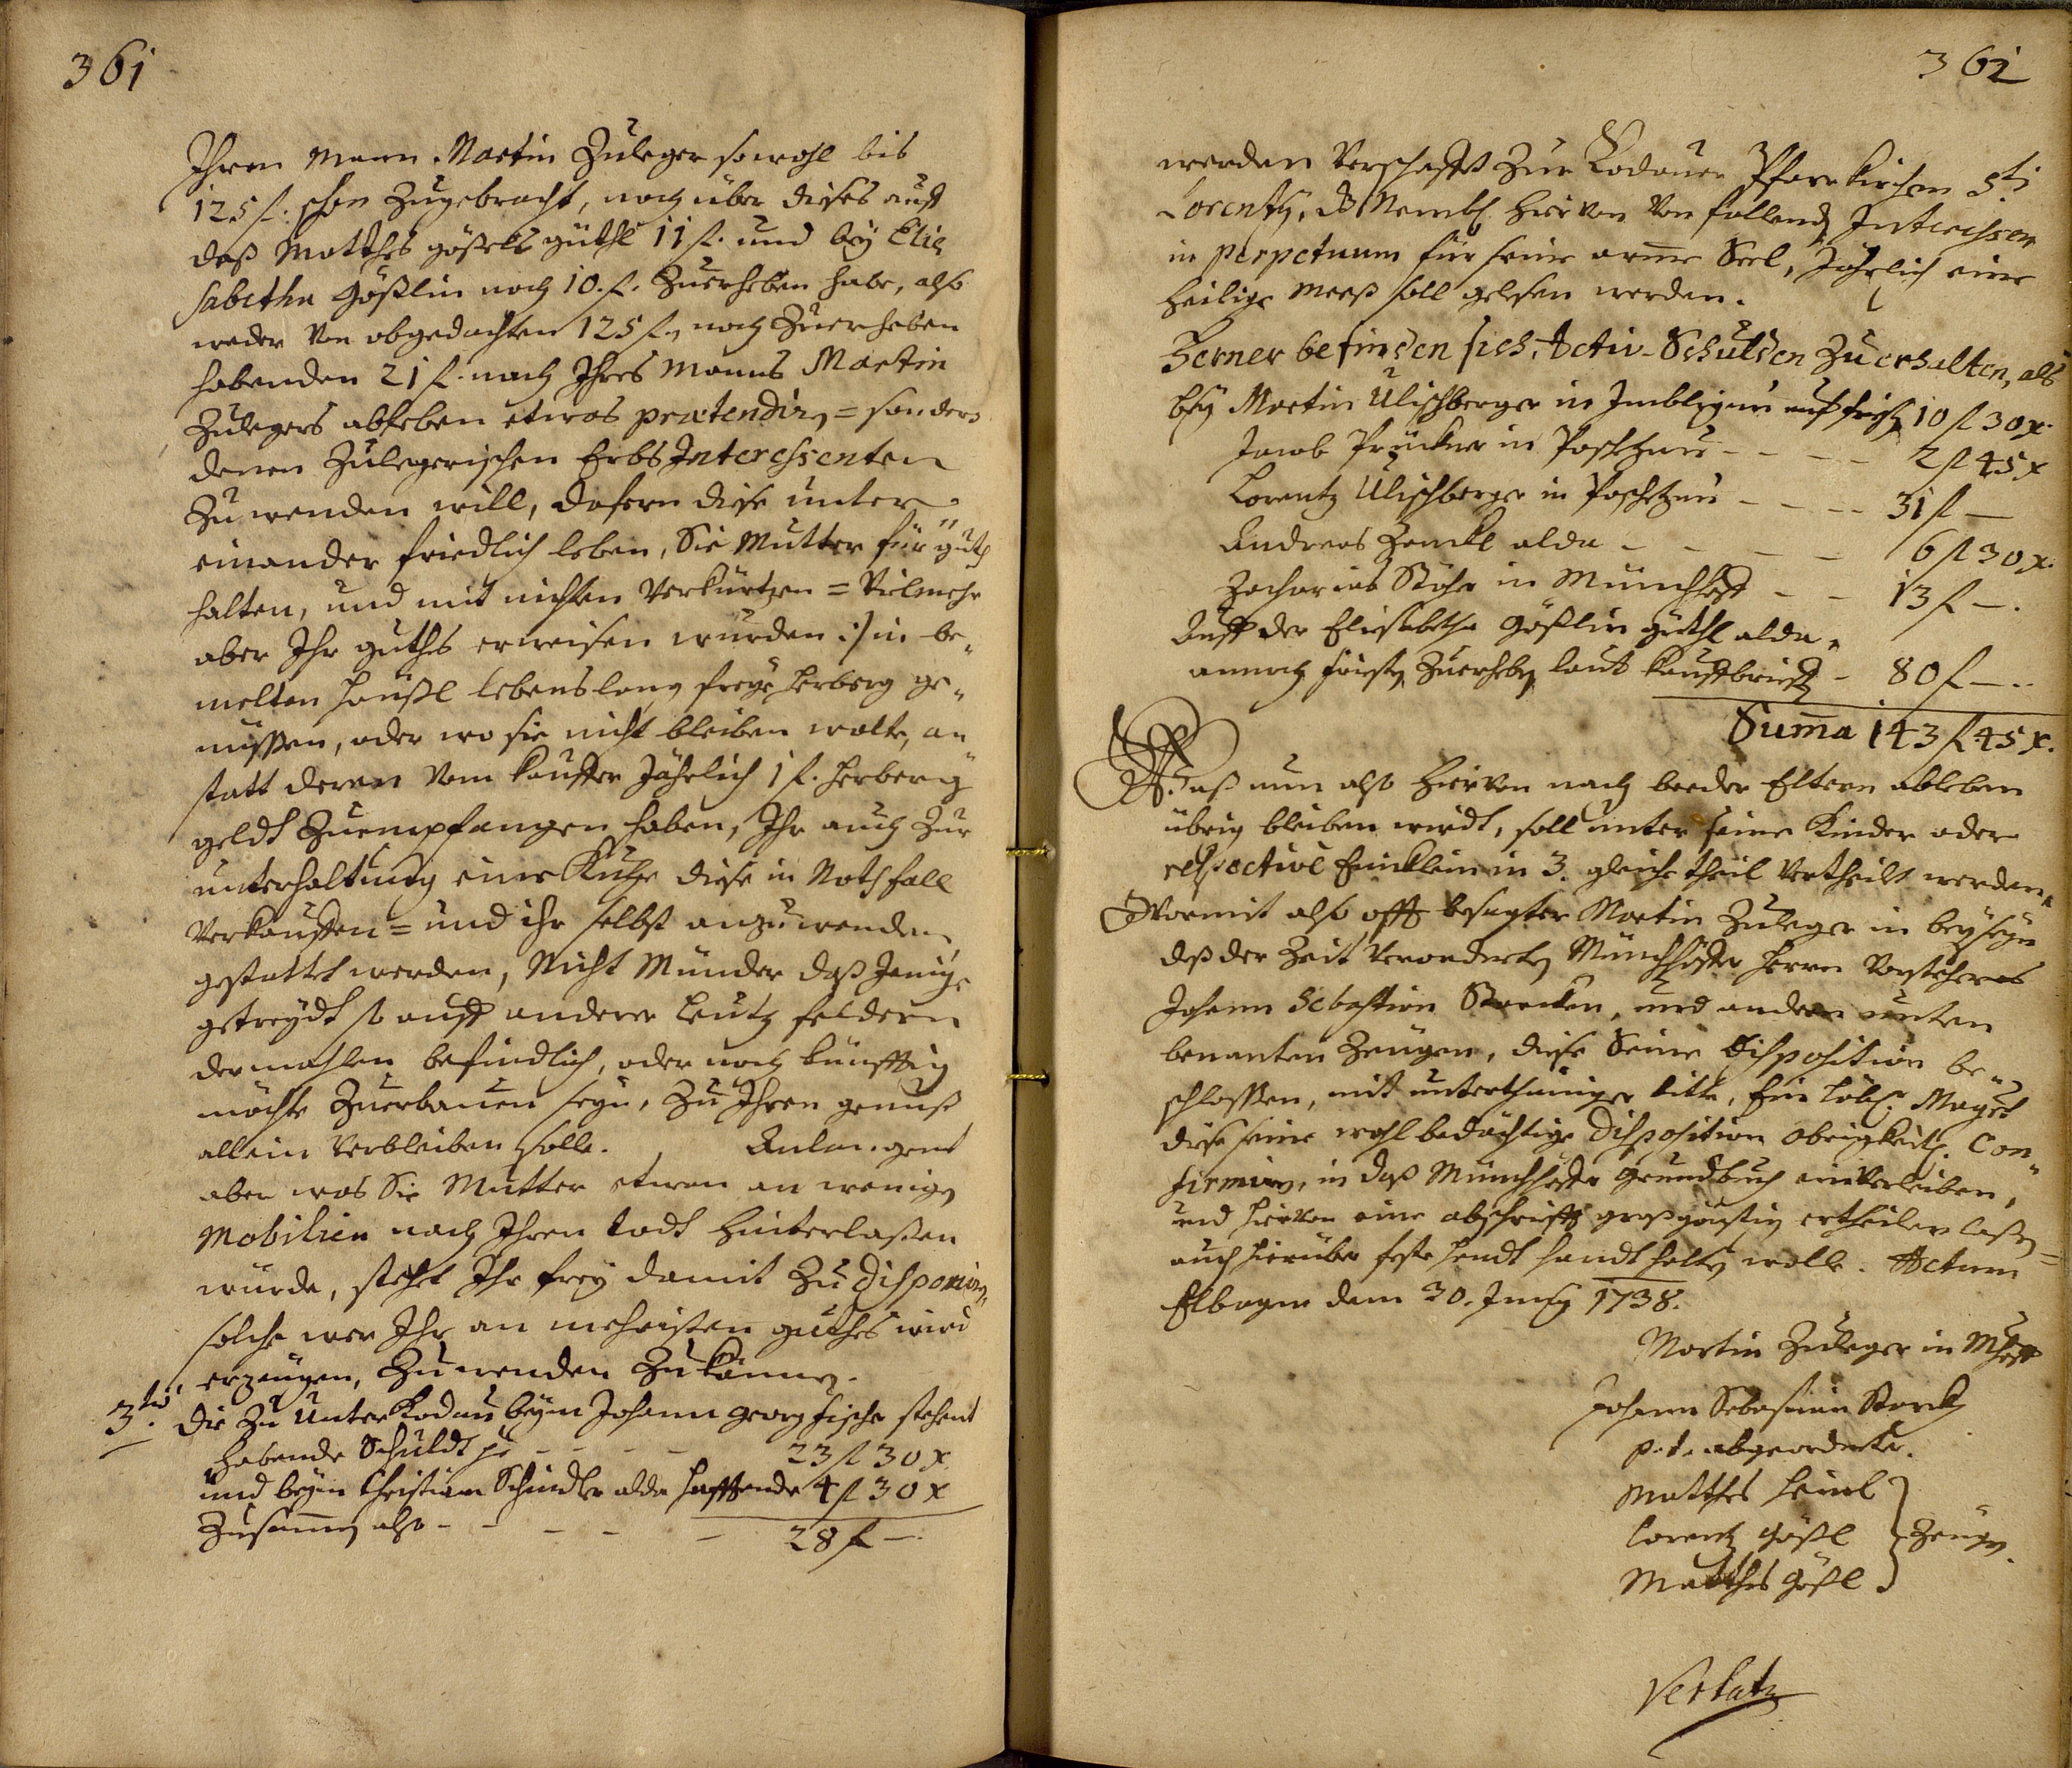 361
Ihren Mann Martin Zuleger sowohl bis
125 f. schon Zugebracht, noch über dieses auff
daß Matthes gößels güthl 11 f. und beÿ Elis
sabetha Gößlin noch 10. f. Zuerheben habe, also
weder Von obgedachten 125 f., noch Zuerheben
habenden 21 f. nach Ihres Manns Martin
Zulegers ableben etwas prætendirn = sondern
denen Zulegerischen Erbs Interessenten
Zuwenden will, dafern diese unter
einander friedlich leben, Sie Mutter für guth
halten, und mit nichten Verkürtzen = Vielmehr
aber Ihr guthes erweisen wurden :/ in be„
melten Häußl lebenslang freÿe Herberg ge„
nüssen, oder wo sie nicht bleiben wolte, an
statt deren Vom Kauffer Jährlich 1 f. Herberg
geldt Zuempfangen haben, Ihr auch Zur
unterhaltung einer Kuhe diese in Noth fall
Verkauffen = und ihr selbst anzuwenden
gestattet werden, Nicht Münder daß Jenige
getreÿdt so auff anderer Leuth feldern
dermahlen befindlich, oder noch künfftig
möchte Zuerbauen seÿn, Zu Ihren genuß
allein Verbleiben solle. Anlangent
aber was Sie Mutter etwan an wenign
Mobilien nach Ihren todt Hinterlaßen
wurde, stehet Ihr freÿ damit Zu disponirn„
solche wer Ihr an mehristen guthes wird
erzeugen, Zuwenden Zukönnen.
3tio. Die Zu Unter Kodau beÿm Johann Georg Fischer stehent
habende Schuldt pr - - - - 23 f 30 x
und beÿm Christian Schindler alda hafftende 4 f 30 x
Zusammen also - - - - - 28 f -.
362
werden Verschafft Zur Kodauer Pfarrkirchen Sti
Lorentzÿ, dß Nembl. hiervon Von fallendn Interessen
in perpetuum für seine arme Seel, Jährlich eine
heilige Meeß soll gelesen werden.
Ferner befinden sich, Activ-Schulden Zu erhalten, als
beÿ Martin Ulischberger in Imbligau auf frist 10 f 30 x.
Jacob Prückner in Poschetzau - - - - 2 f 45 x
Lorentz Ulischberger in Poschetzau - - - - 31 f -
Andreas Zenckl alda - - - - 6 f 30 x.
Zacharias Stöhr in Münchhoff - - 13 f -.
Auff der Elisabetha Gößlin güthl alda„
annoch fristn Zuerhebn laut Kauffbrieffs - 80 f -..
Summa 143 f 45 x.
Waß nun also hiervon nach beeder Eltern ableben
übrig bleiben wirdt, soll unter seine Kinder oder
respective Eencklein in 3. gleiche theil Vertheilt werden„
Wormit also offt besagter Martin Zuleger in beÿseÿn
deß der Zeit Verordneten Münchhöffer Herrn Vorstehers
Johann Sebastian Storcken, und andern unten
benanten Zeugen, diese Seine Disposition be„
schlossen, mit unterthäniger bitte, Ein Löbl. Magist
diese seine wohlbedächtige Disposition obrigkeitl. Con„
firmirn, in daß Münchhöffer Grundbuch einverleiben,
und hiervon eine abschrifft großgünstig ertheilen laßen =
auch hierüber feste handt handt halten wolle. Actum
Elbogen dem 30. Junÿ 1738.
Martin Zuleger in Mhoff
Johann Sebastian Storck
p. t. abgeordneter.
Matthes Heinl
Lorentz Gößl } Zeugn.
Matthes Gößl